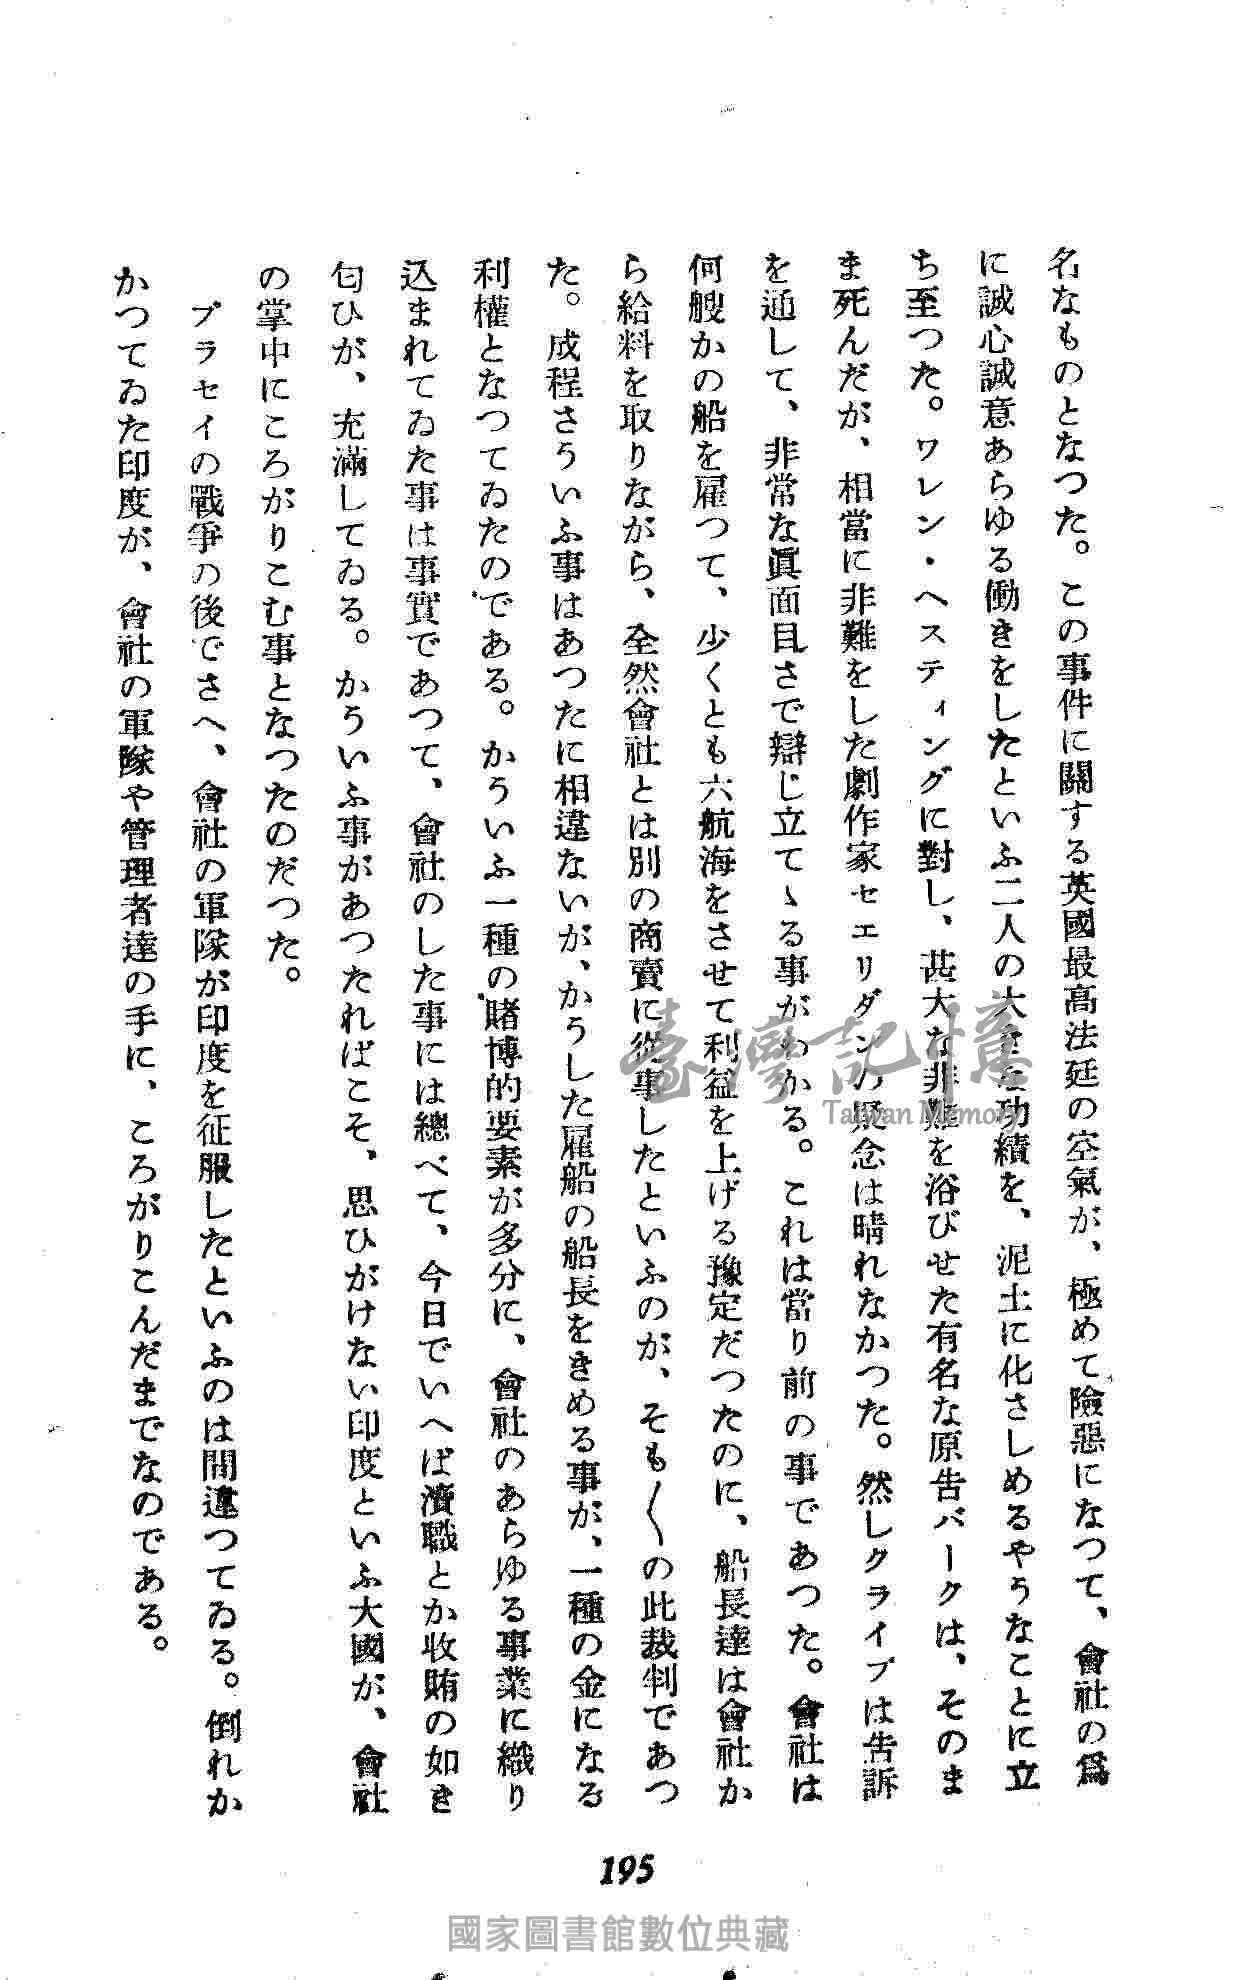 名なものとなつた。この事件に關する英國最高法廷の空氣が、極めて險惡になつて、會社の爲
に誠心誠意あらゆる働きをしたといふ二人の大きな功績を、泥土に化さしめるやうなことに立
ち至つた。ワレン・ヘスティングに對し、甚大な非難を浴びせた有名な原告バークは、そのま
ま死んだが、相當に非難をした劇作家セエリダンの疑念は晴れなかつた。然しクライブは告訴
を通して、非常な眞面目さで辯じ立てゝる事がわかる。これは當り前の事であつた。會社は
何艘かの船を雇つて、少くとも六航海をさせて利益を上げる豫定だつたのに、船長達は會社か
ら給料を取りながら、全然會社とは別の商賣に從事したといふのが、そも〱の此裁判であつ
た。成程さういふ事はあつたに相違ないが、かうした雇船の船長をきめる事が、一種の金になる
利權となつてゐたのである。かういふ一種の賭博的要素が多分に、會社のあらゆる事業に織り
込まれてゐた事は事實であつて、會社のした事には總べて、今日でいへば瀆職とか收賄の如き
匂ひが、充滿してゐる。かういふ事があつたればこそ、思ひがけない印度といふ大國が、會社
の掌中にころがりこむ事となつたのだつた。
プラセイの戰爭の後でさへ、會社の軍隊が印度を征服したといふのは間違つてゐる。倒れか
かつてゐた印度が、會社の軍隊や管理者達の手に、ころがりこんだまでなのである。
195
臺灣記憶
Taiwan Memory
國家圖書館數位典藏